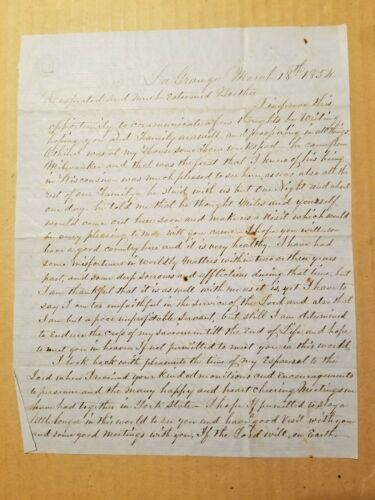 La Grange March 18th 1854
Respected and much Esteemed Brother
I improve this
opportunity to communicate a few thoughts by writing
hoping you and Family are well and prospering in all things
was at my House some few weeks ago. He came from
Milwaukee and that was the first that I knew of his being
in Wisconsin was much pleased to see him, as was also all the
rest of our Family, he staid with us but one Night and about
one day. he told me that he thought Miles and yourself
would come out here soon and make us a Visit which would
be very pleasing to me, will you come, I hope you will, we
have a good country here and it is very healthy. I have had
some misfortunes in worldly matters within two or three years
past, and some deep sorrows and afflictions during that time, but
I am thankful that it is as well with me as it is, yet I have to
say I am too unfaithful in the service of the Lord and also that
I am but a poor unprofitable Servant, but still I am determined
to Endure the cross of my Saviour till the End of Life and hope
to meet you in heaven If not permitted to meet you in this world.
I look back with pleasure to the time of my Espousal to the
Lord when I received your kind admonitions and Encouragements
to persevere and the many happy and heart cheering Meetings we
have had together in York State I hope If permitted to stay a
little longer in this world to see you and have good Visit with you
and some good Meetings with you, If the Lord will, on Earth.